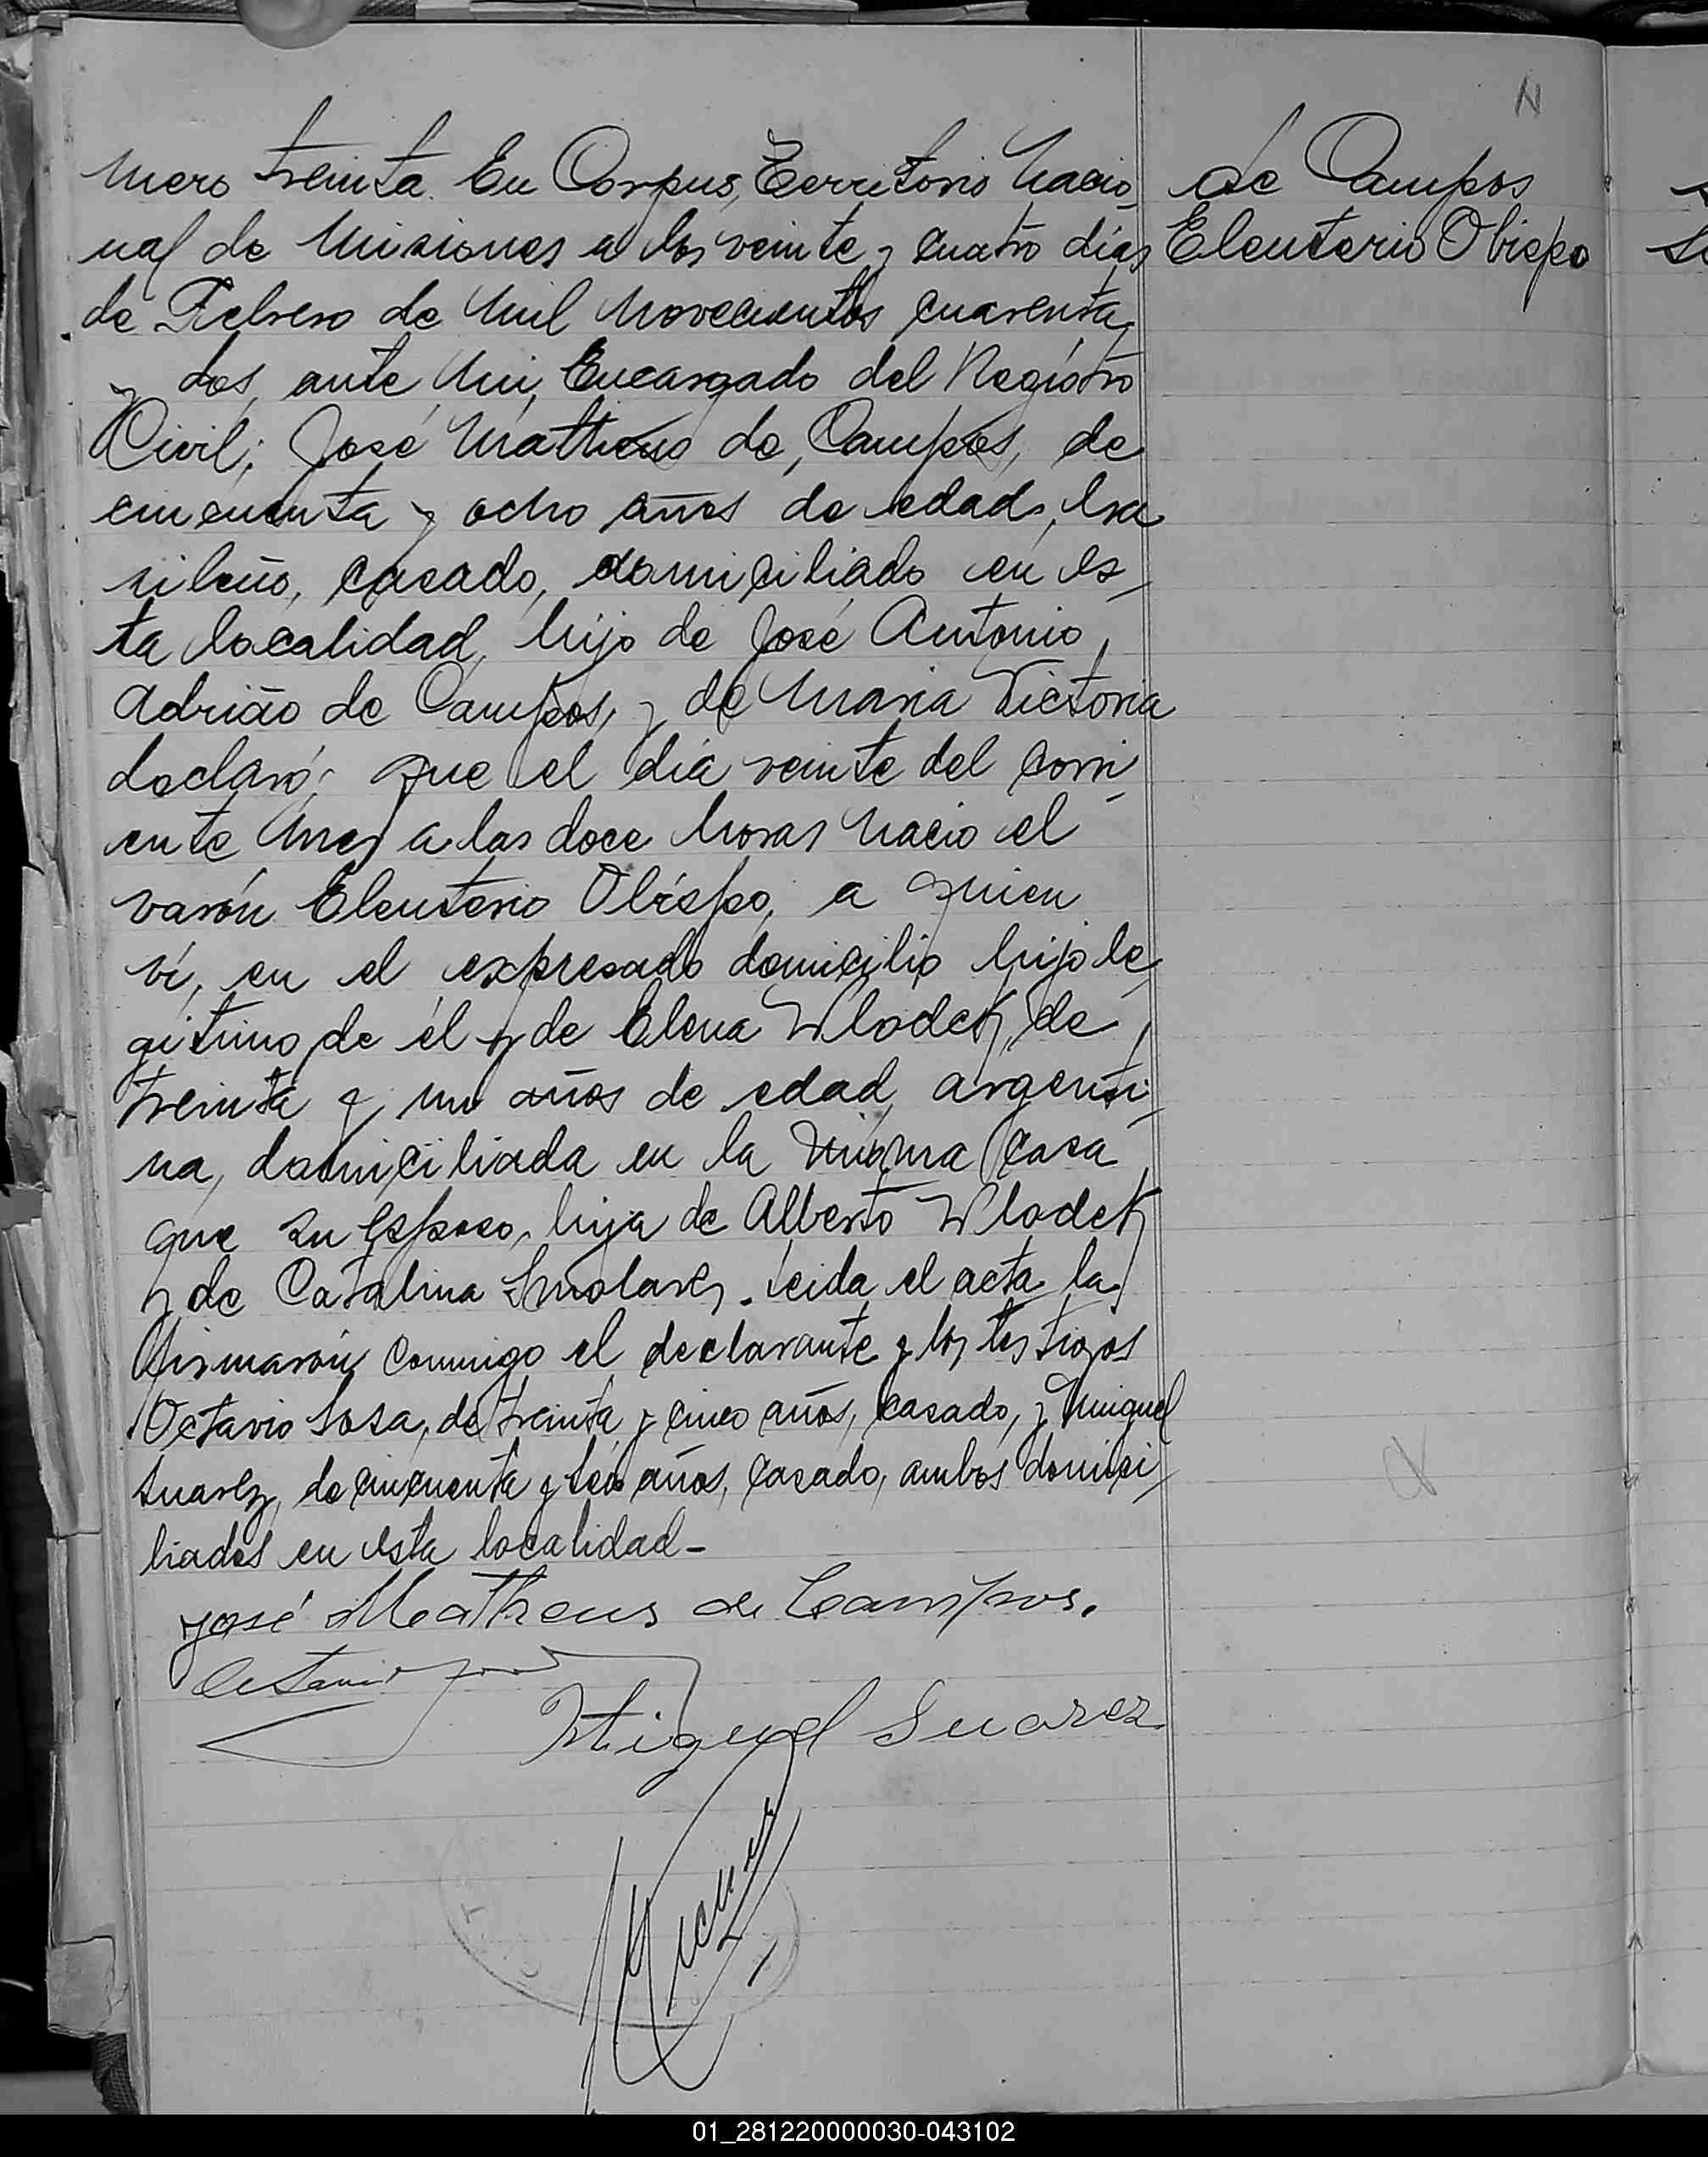 N
de Campos
Eleuterio Obispo
mero treinta. En Corpus, Territorio Nacio
nal de Misiones a los veinte y cuatro días
de Febrero de mil novecientos cuarenta
y dos, ante mi, Encargado del Registro
Civil; José Matheus de Campos, de
cincuenta y ocho años de edad, bra
sileño, casado, domiciliado en es
ta localidad, hijo de José Antonio
Adrião de Campos, y de Maria Victoria
declaró; que el día veinte del corri
ente mes a las doce horas nacio el
varón Eleuterio Obispo, a quien
vi, en el expresado domicilio hijo le
gitimo de él y de Elena Wlodek, de
treinta y un años de edad, argenti
na, domiciliada en la misma casa
que su esposo, hija de Alberto Wlodek
y de Catalina Smolarz. Leida el acta la
firmarón conmigo el declarante y los testigos
Octavio Sosa, de treinta y cinco años, casado, y Miguel
Suarez, de cincuenta y años, casado, ambos domici
liados en esta localidad-
José Matheus de Campos.
Octavio
Miguel Suarez
01_281220000030-043102